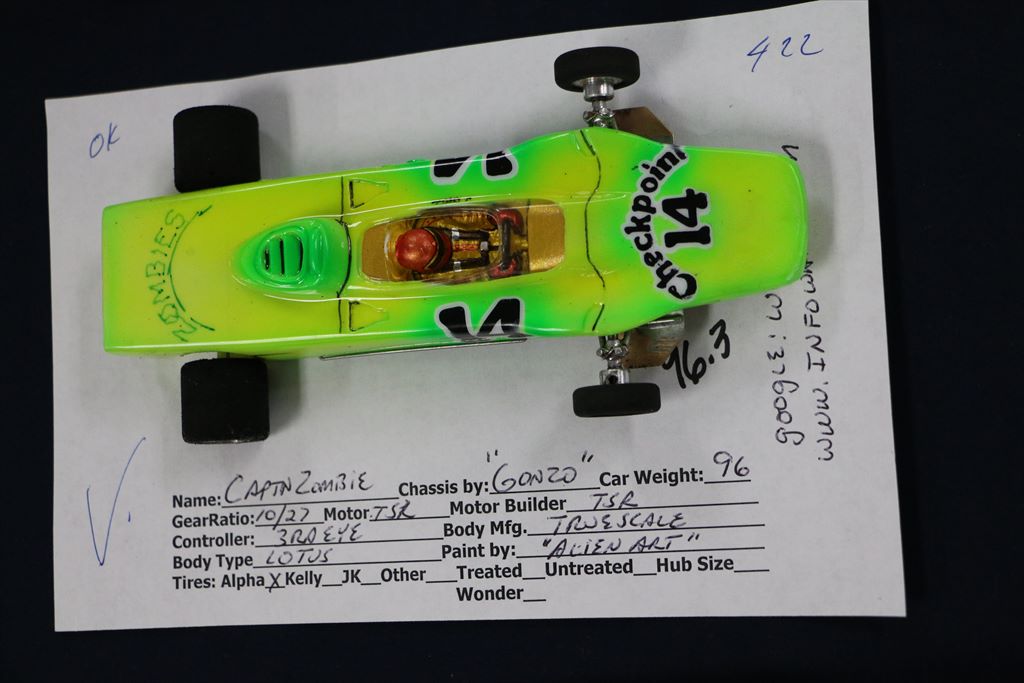 422
OK
ZOMBIES
Checkpoint
14
96.3
google: W
WWW.INFOWN
Name: CAPTN ZOMBIE Chassis by: "GONZO" Car Weight: 96
GearRatio: 10/27 Motor TSR Motor Builder TSR
Controller: 3RD EYE Body Mfg. TRUESCALE
Body Type LOTUS Paint by: "ALIEN ART"
Tires: Alpha X Kelly__JK__Other___Treated__Untreated__Hub Size___
Wonder__